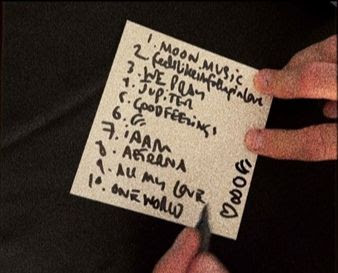 1. MOON MUSIC
2. feelslikeimfallinginlove
3. WE PRAY
4. JUPiTER
5. GOOD FEELiNGS
6.
7. iAAM
8. AETERNA
9. ALL MY LOVE
10. ONE WORLD